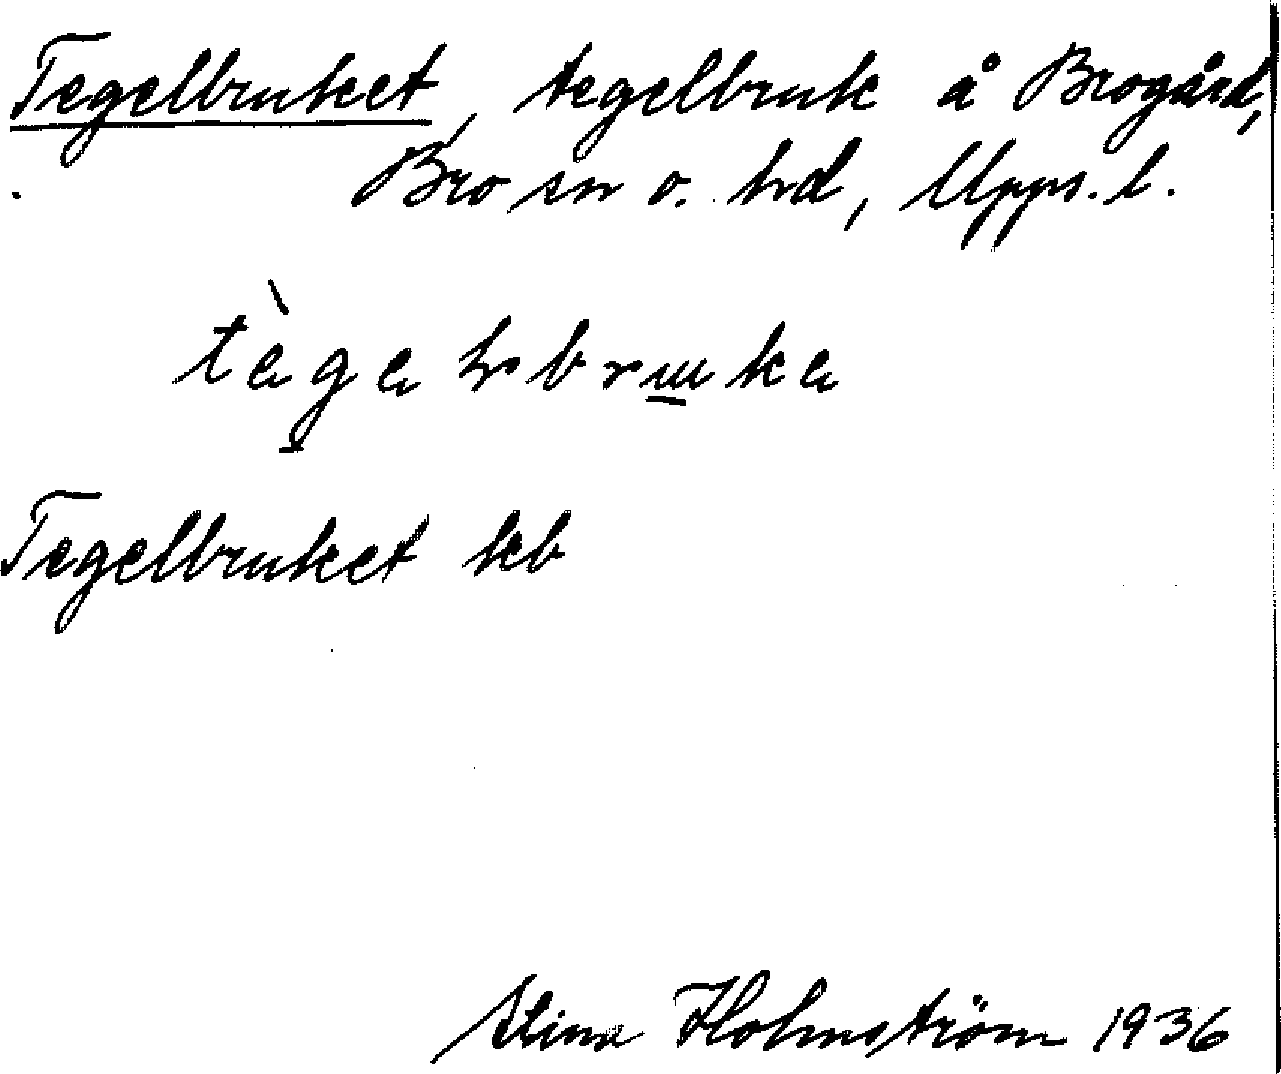 Tegelbruket, tegelbruk å Brogård,
Bro sn o. hd, Upps. l.
Tegelbruket kb
Stina Holmström 1936